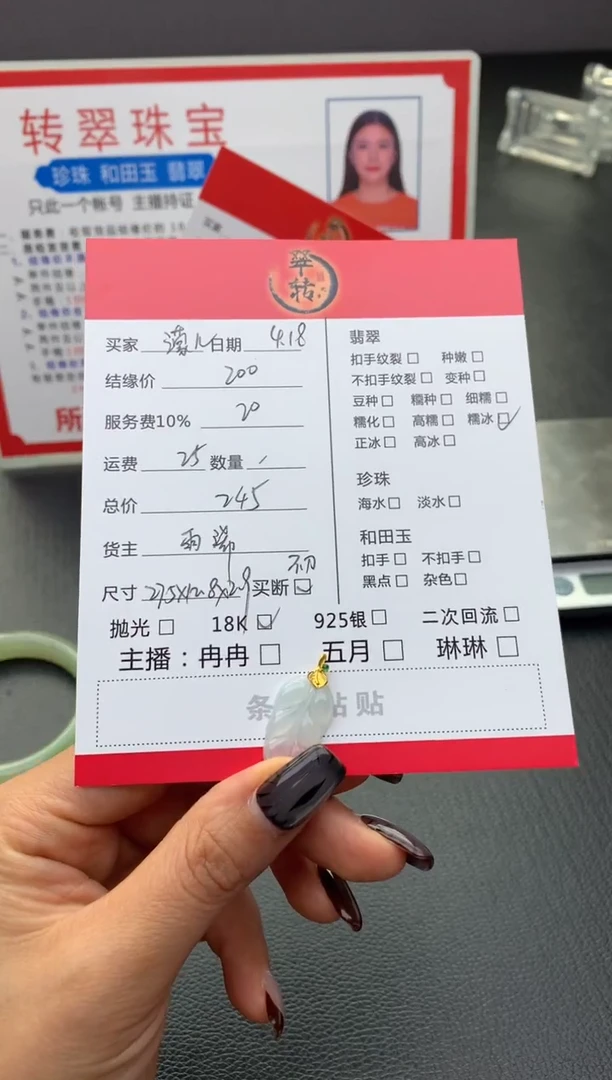 转翠珠宝
珍珠 和田玉 翡翠
只此一个帐号 主播持证
买家
所
翠转
买家 日期 4.18
结缘价 200
服务费10% 20
运费 25 数量 1
总价 245
货主 雨瑞
尺寸 27.5x12.8x2.9 买断
抛光 18K 925银 二次回流
主播：冉冉 五月 琳琳
条 粘贴
翡翠
扣手纹裂 种嫩
不扣手纹裂 变种
豆种 糯种 细糯
糯化 高糯 糯冰
正冰 高冰
珍珠
海水 淡水
和田玉
扣手 不扣手
黑点 杂色